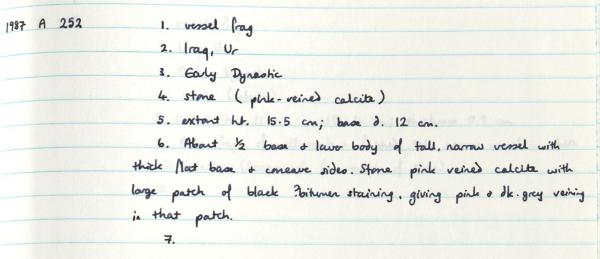 1987 A 252 1. vessel frag
2. Iraq, Ur
3. Early Dynastic
4. stone (pink-veined calcite)
5. extant ht. 15.5 cm; base d. 12 cm.
6. About 1/2 base & lower body of tall, narrow vessel with
thick flat base & concave sides. Stone pink veined calcite with
large patch of black ?bitumen staining, giving pink & dk. grey veining
in that patch.
7.